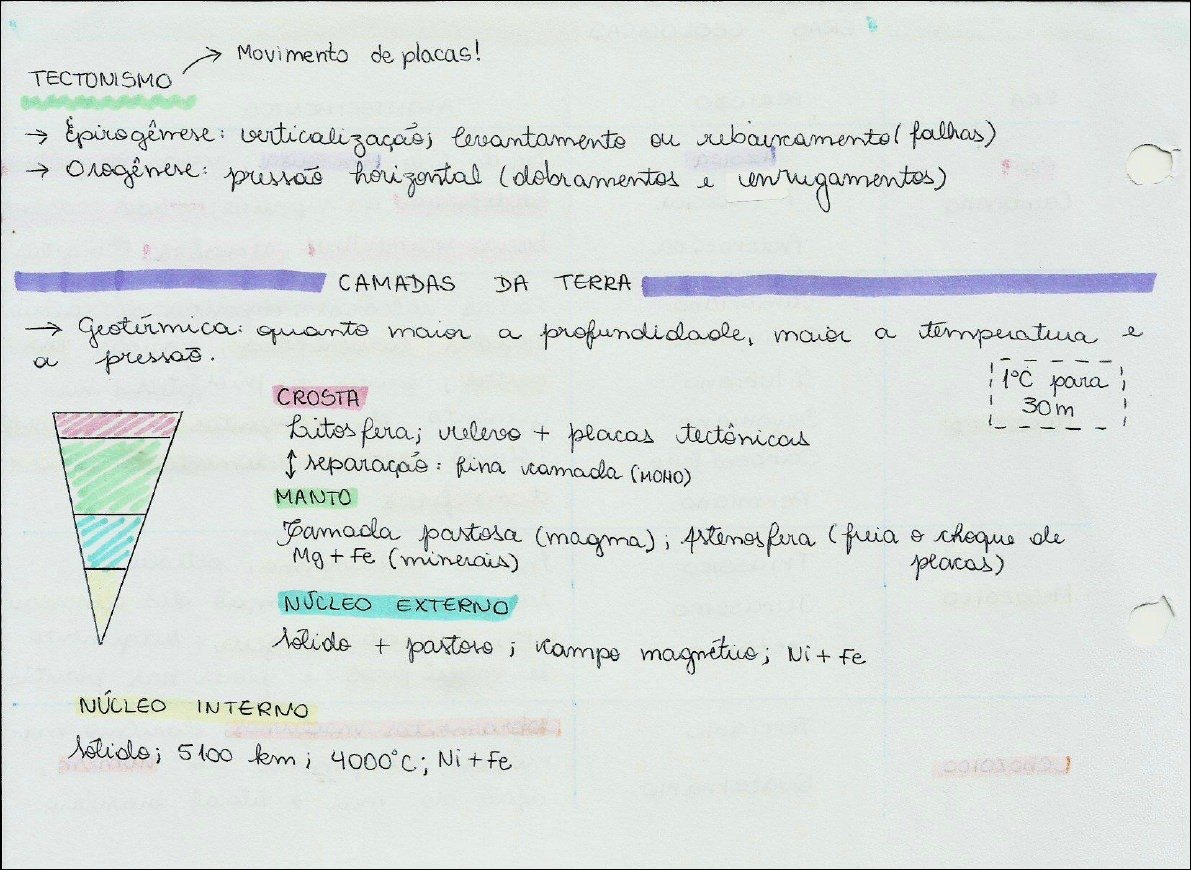 Movimento de placas!
TECTONISMO
→ Epirogênese: verticalização; levantamento ou rebaixamento (falhas)
→ Orogênese: pressão horizontal (dobramentos e enrugamentos)
CAMADAS DA TERRA
→ Geotérmica: quanto maior a profundidade, maior a temperatura e
a pressão.
1°C para
30m
CROSTA
Litosfera; relevo + placas tectônicas
↕ separação: fina camada (MOHO)
MANTO
Camada pastosa (magma); Astenosfera (freia o choque de
placas)
Mg + Fe (minerais)
NÚCLEO EXTERNO
Sólido + pastoso; campo magnético; Ni + Fe
NÚCLEO INTERNO
Sólido; 5100 km; 4000°C; Ni + Fe